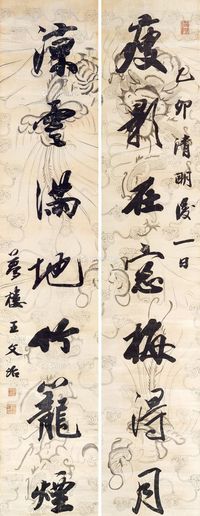 瘦影在窓梅得月
己卯清明後一日
涼雲滿地竹籠煙
夢樓王文治